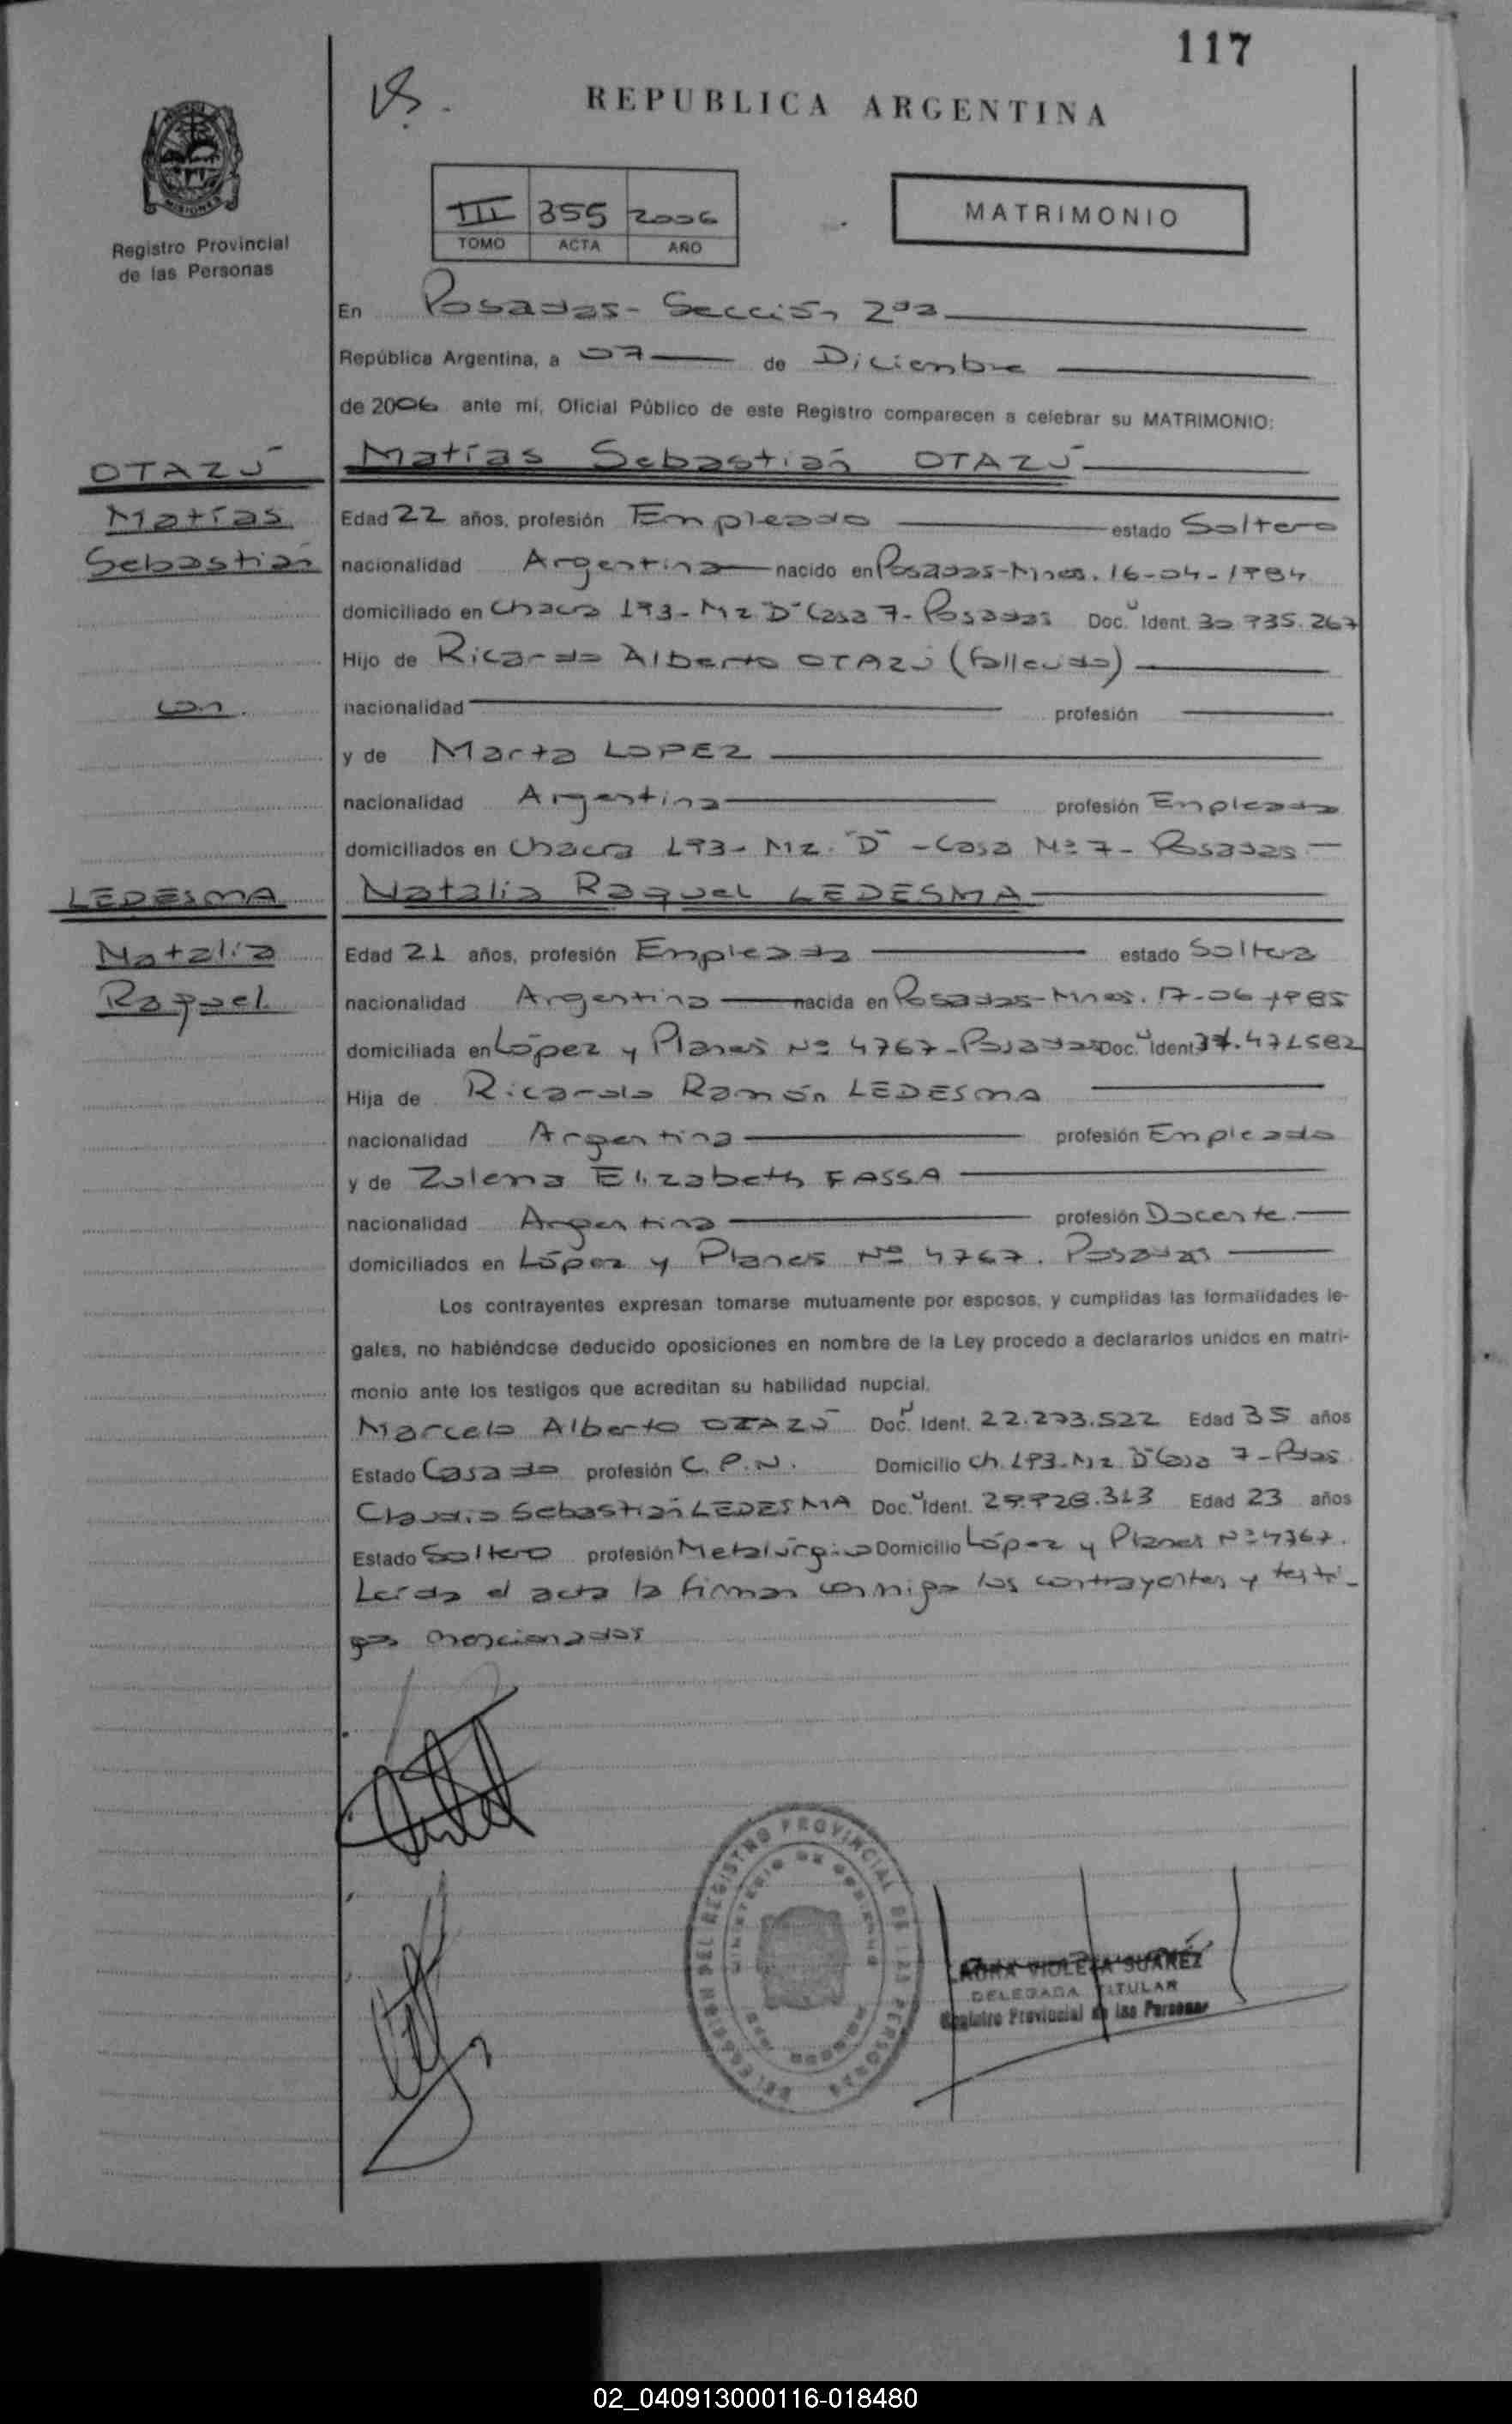 117
REPUBLICA ARGENTINA
MISIONES
Registro Provincial
de las Personas
III 355 2006
TOMO ACTA AÑO
MATRIMONIO
En Posadas - Sección 2da
República Argentina, a 07 de Diciembre
de 2006 ante mí, Oficial Público de este Registro comparecen a celebrar su MATRIMONIO:
OTAZÚ Matías Sebastián OTAZÚ
Matías Edad 22 años, profesión Empleado estado Soltero
Sebastián nacionalidad Argentina nacido en Posadas-Mnes. 16-04-1984
domiciliado en Chacra 193- Mz "D" Casa 7- Posadas Doc. U Ident. 30 935.267
Hijo de Ricardo Alberto OTAZÚ (fallecido)
con. nacionalidad profesión
y de Marta LOPEZ
nacionalidad Argentina profesión Empleada
domiciliados en Chacra 193- Mz. "D" - Casa Nº 7- Posadas
LEDESMA Natalia Raquel LEDESMA
Natalia Edad 21 años, profesión Empleada estado Soltera
Raquel nacionalidad Argentina nacida en Posadas-Mnes. 17-06-1985
domiciliada en López y Planes Nº 4767-Posadas Doc. U Ident. 471582
Hija de Ricardo Ramón LEDESMA
nacionalidad Argentina profesión Empleado
y de Zulema Elizabeth FASSA
nacionalidad Argentina profesión Docente.
domiciliados en López y Planes Nº 4767. Posadas
Los contrayentes expresan tomarse mutuamente por esposos, y cumplidas las formalidades le-
gales, no habiéndose deducido oposiciones en nombre de la Ley procedo a declararlos unidos en matri-
monio ante los testigos que acreditan su habilidad nupcial.
Marcelo Alberto OTAZÚ Doc. U Ident. 22.273.522 Edad 35 años
Estado Casado profesión C.P.N. Domicilio Ch. 193-Mz "D" Casa 7-Pdas
Claudio Sebastián LEDESMA Doc. U Ident. 29.928.313 Edad 23 años
Estado Soltero profesión Metalúrgico Domicilio López y Planes Nº 4367.
Leída el acta la firman conmigo los contrayentes y testi-
gos mencionados
REGISTRO PROVINCIAL DE LAS PERSONAS
MINISTERIO DE GOBIERNO
LAURA VIOLETA SUAREZ
DELEGADA TITULAR
Registro Provincial de las Personas
02_040913000116-018480